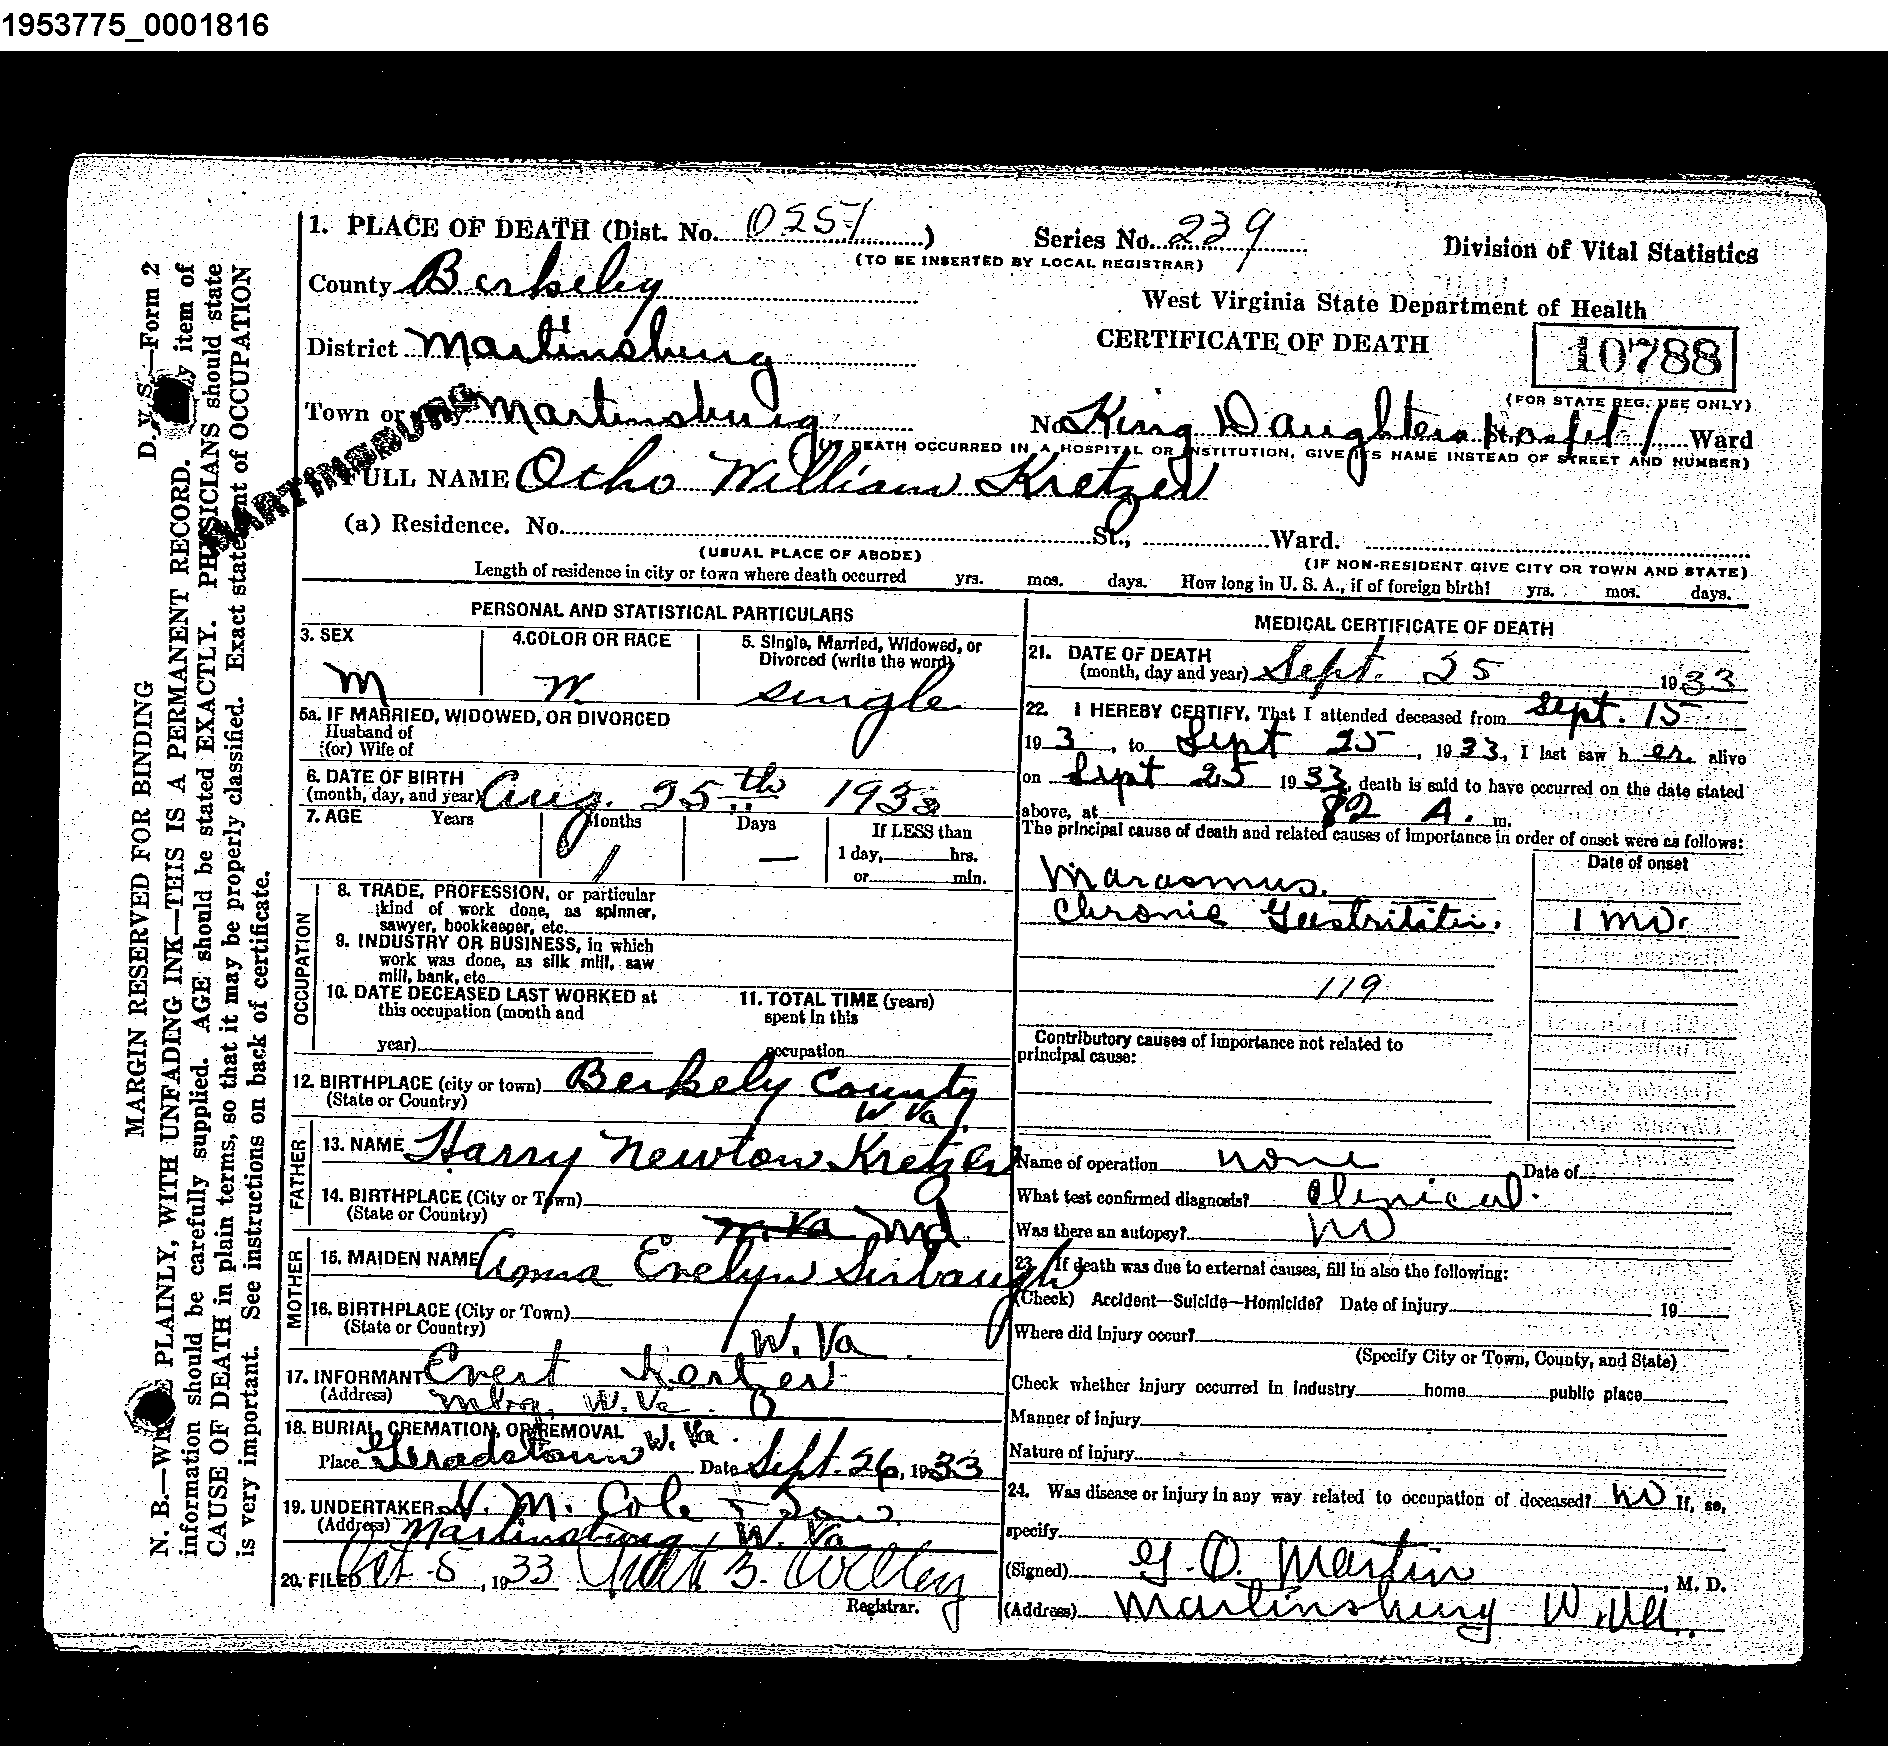 1953775_0001816
1. PLACE OF DEATH (Dist. No. 0251)
Series No. 239
(TO BE INSERTED BY LOCAL REGISTRAR)
Division of Vital Statistics
County Berkeley
West Virginia State Department of Health
CERTIFICATE OF DEATH
10788
(FOR STATE REG. USE ONLY)
District Martinsburg
Town or Martinsburg
MARTINSBURG
No. King Daughters Hospit / St., Ward
(IF DEATH OCCURRED IN A HOSPITAL OR INSTITUTION, GIVE ITS NAME INSTEAD OF STREET AND NUMBER)
FULL NAME Ocho William Kretzer
(a) Residence. No. St., Ward.
(USUAL PLACE OF ABODE)
(IF NON-RESIDENT GIVE CITY OR TOWN AND STATE)
Length of residence in city or town where death occurred yrs. mos. days. How long in U. S. A., if of foreign birth? yrs. mos. days.
PERSONAL AND STATISTICAL PARTICULARS
3. SEX
M
4. COLOR OR RACE
W
5. Single, Married, Widowed, or
Divorced (write the word)
single
5a. IF MARRIED, WIDOWED, OR DIVORCED
Husband of
(or) Wife of
6. DATE OF BIRTH
(month, day, and year) Aug. 25th 1933
7. AGE Years Months Days If LESS than
1 day, hrs.
or min.
1 —
OCCUPATION
8. TRADE, PROFESSION, or particular
kind of work done, as spinner,
sawyer, bookkeeper, etc.
9. INDUSTRY OR BUSINESS, in which
work was done, as silk mill, saw
mill, bank, etc.
10. DATE DECEASED LAST WORKED at
this occupation (month and
year)
11. TOTAL TIME (years)
spent in this
occupation
12. BIRTHPLACE (city or town) Berkely County
(State or Country) W Va
FATHER
13. NAME Harry Newton Kretzer
14. BIRTHPLACE (City or Town)
(State or Country) W. Va Md
MOTHER
15. MAIDEN NAME Anna Evelyn Sirbaugh
16. BIRTHPLACE (City or Town)
(State or Country) W. Va
17. INFORMANT Evert Kertzer
(Address) Mbrg. W. Va.
18. BURIAL, CREMATION, OR REMOVAL
Place Geradstown W. Va. Date Sept. 26, 1933
19. UNDERTAKER M. Cole & Son
(Address) Martinsburg, W. Va.
20. FILED Oct 5, 1933
Registrar.
MEDICAL CERTIFICATE OF DEATH
21. DATE OF DEATH
(month, day and year) Sept. 25 1933
22. I HEREBY CERTIFY, That I attended deceased from Sept. 15
193, to Sept 25, 1933, I last saw her alive
on Sept 25 1933, death is said to have occurred on the date stated
above, at A. m.
The principal cause of death and related causes of importance in order of onset were as follows:
Date of onset
Marasmus.
Chronic Gastritis. 1 mo.
119
Contributory causes of importance not related to
principal cause:
Name of operation none Date of
What test confirmed diagnosis? Clinical.
Was there an autopsy? No
23. If death was due to external causes, fill in also the following:
(Check) Accident—Suicide—Homicide? Date of injury 19
Where did injury occur?
(Specify City or Town, County, and State)
Check whether injury occurred in industry home public place
Manner of injury
Nature of injury
24. Was disease or injury in any way related to occupation of deceased? No If, so,
specify
(Signed) G. O. Martin, M. D.
(Address) Martinsburg W. Va.
D. V. S.—Form 2
MARGIN RESERVED FOR BINDING
N. B.—WRITE PLAINLY, WITH UNFADING INK—THIS IS A PERMANENT RECORD. item of
information should be carefully supplied. AGE should be stated EXACTLY. PHYSICIANS should state
CAUSE OF DEATH in plain terms, so that it may be properly classified. Exact statement of OCCUPATION
is very important. See instructions on back of certificate.